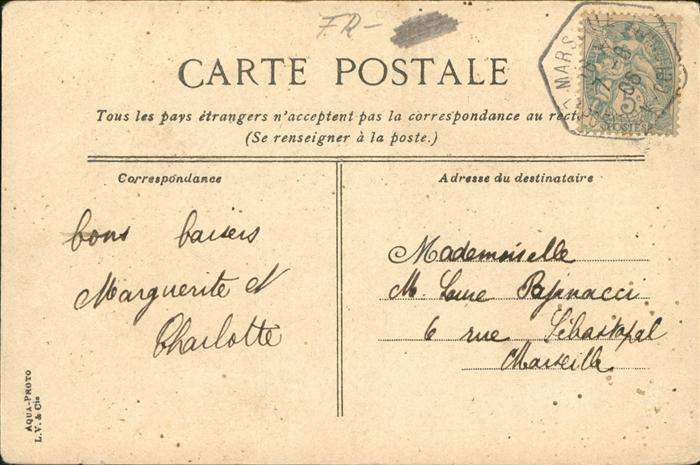 FR-
CARTE POSTALE
Tous les pays étrangers n'acceptent pas la correspondance au recto
(Se renseigner à la poste.)
Correspondance
bons baisers
Marguerite et
Charlotte
Adresse du destinataire
Mademoiselle
M. Papanacci
6 rue Sébastopal
Marseille
AQUA-PHOTO
L.V. & Cie
5
POSTES
MARS